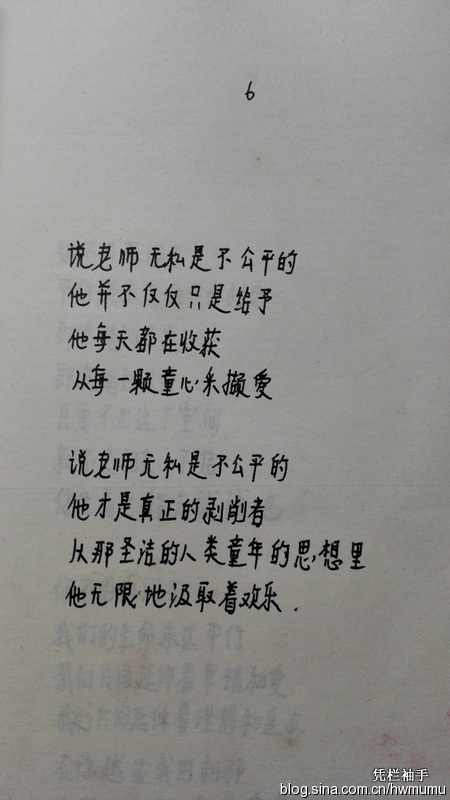 6
说老师无私是不公平的
他并不仅仅只是给予
他每天都在收获
从每一颗童心采撷爱
说老师无私是不公平的
他才是真正的剥削者
从那圣洁的人类童年的思想里
他无限地汲取着欢乐.
凭栏袖手
blog.sina.com.cn/hwmumu